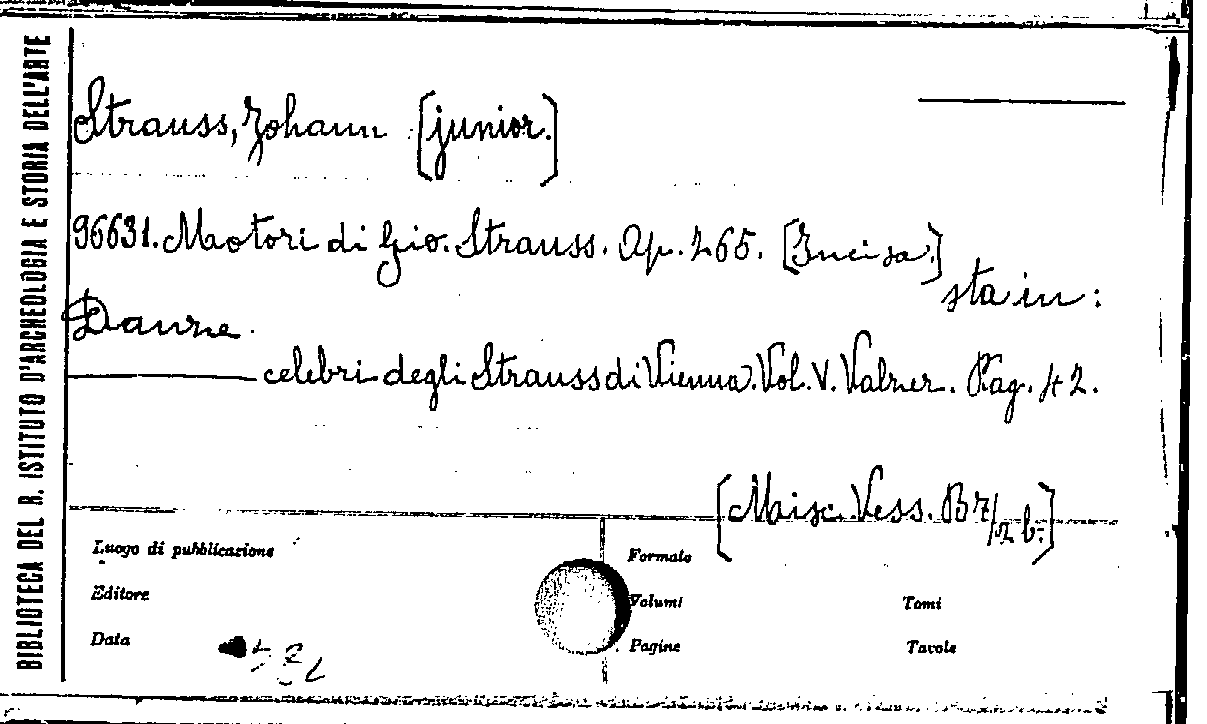 BIBLIOTECA DEL R. ISTITUTO D'ARCHEOLOGIA E STORIA DELL'ARTE
Strauss, Johann [junior.]
96631. Motori di Gio. Strauss. Op. 265. [Incisa.]
sta in:
Danze
celebri degli Strauss di Vienna. Vol. V. Valzer. Pag. 42.
[Misc. Vess. B 7/12 b.]
Luogo di pubblicazione
Formato
Editore
Volumi
Tomi
Data
Pagine
Tavole